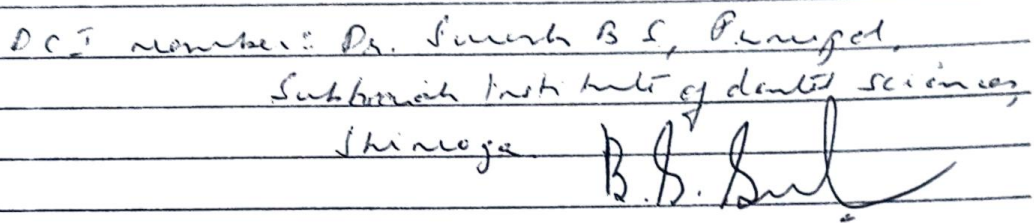 DCI member:- Dr. Suresh B S, Principal,
Subbaiah Institute of dental sciences,
Shimoga. B. S. Sul